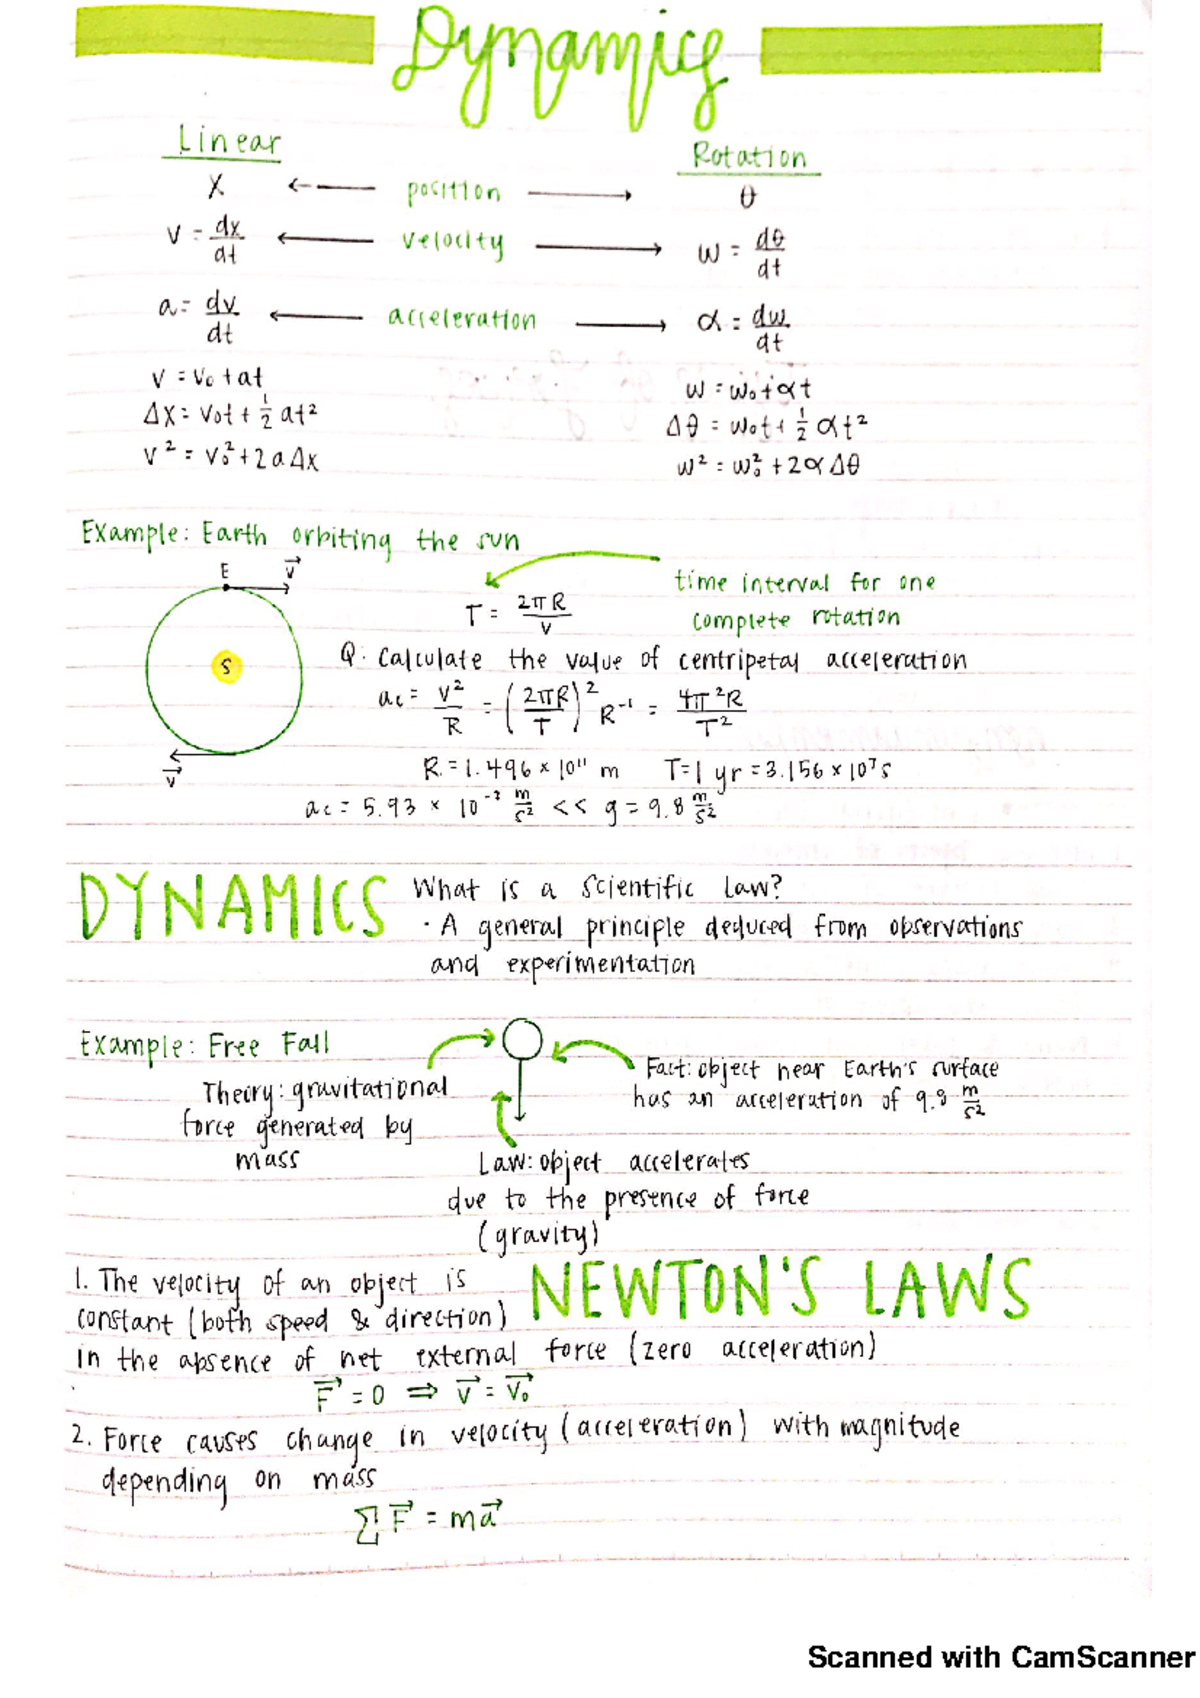 Dynamics
Linear Rotation
X ← position → θ
v = dx/dt ← velocity → w = dθ/dt
a = dv/dt ← acceleration → α = dw/dt
v = v₀ + at
Δx = v₀t + 1/2 at²
v² = v₀² + 2aΔx
w = w₀ + αt
Δθ = w₀t + 1/2 αt²
w² = w₀² + 2αΔθ
Example: Earth orbiting the sun
E v⃗
S
v⃗
T = 2πR/v
time interval for one
complete rotation
Q: Calculate the value of centripetal acceleration
ac = v²/R = (2πR/T)² R⁻¹ = 4π²R/T²
R = 1.496 × 10¹¹ m T = 1 yr = 3.156 × 10⁷ s
ac = 5.93 × 10⁻³ m/s² << g = 9.8 m/s²
DYNAMICS
What is a scientific law?
· A general principle deduced from observations
and experimentation
Example: Free Fall
Theory: gravitational
force generated by
mass
Fact: object near Earth's surface
has an acceleration of 9.8 m/s²
Law: object accelerates
due to the presence of force
(gravity)
NEWTON'S LAWS
1. The velocity of an object is
constant (both speed & direction)
in the absence of net external force (zero acceleration)
F⃗ = 0 ⇒ v⃗ = v⃗₀
2. Force causes change in velocity (acceleration) with magnitude
depending on mass
∑F⃗ = ma⃗
Scanned with CamScanner